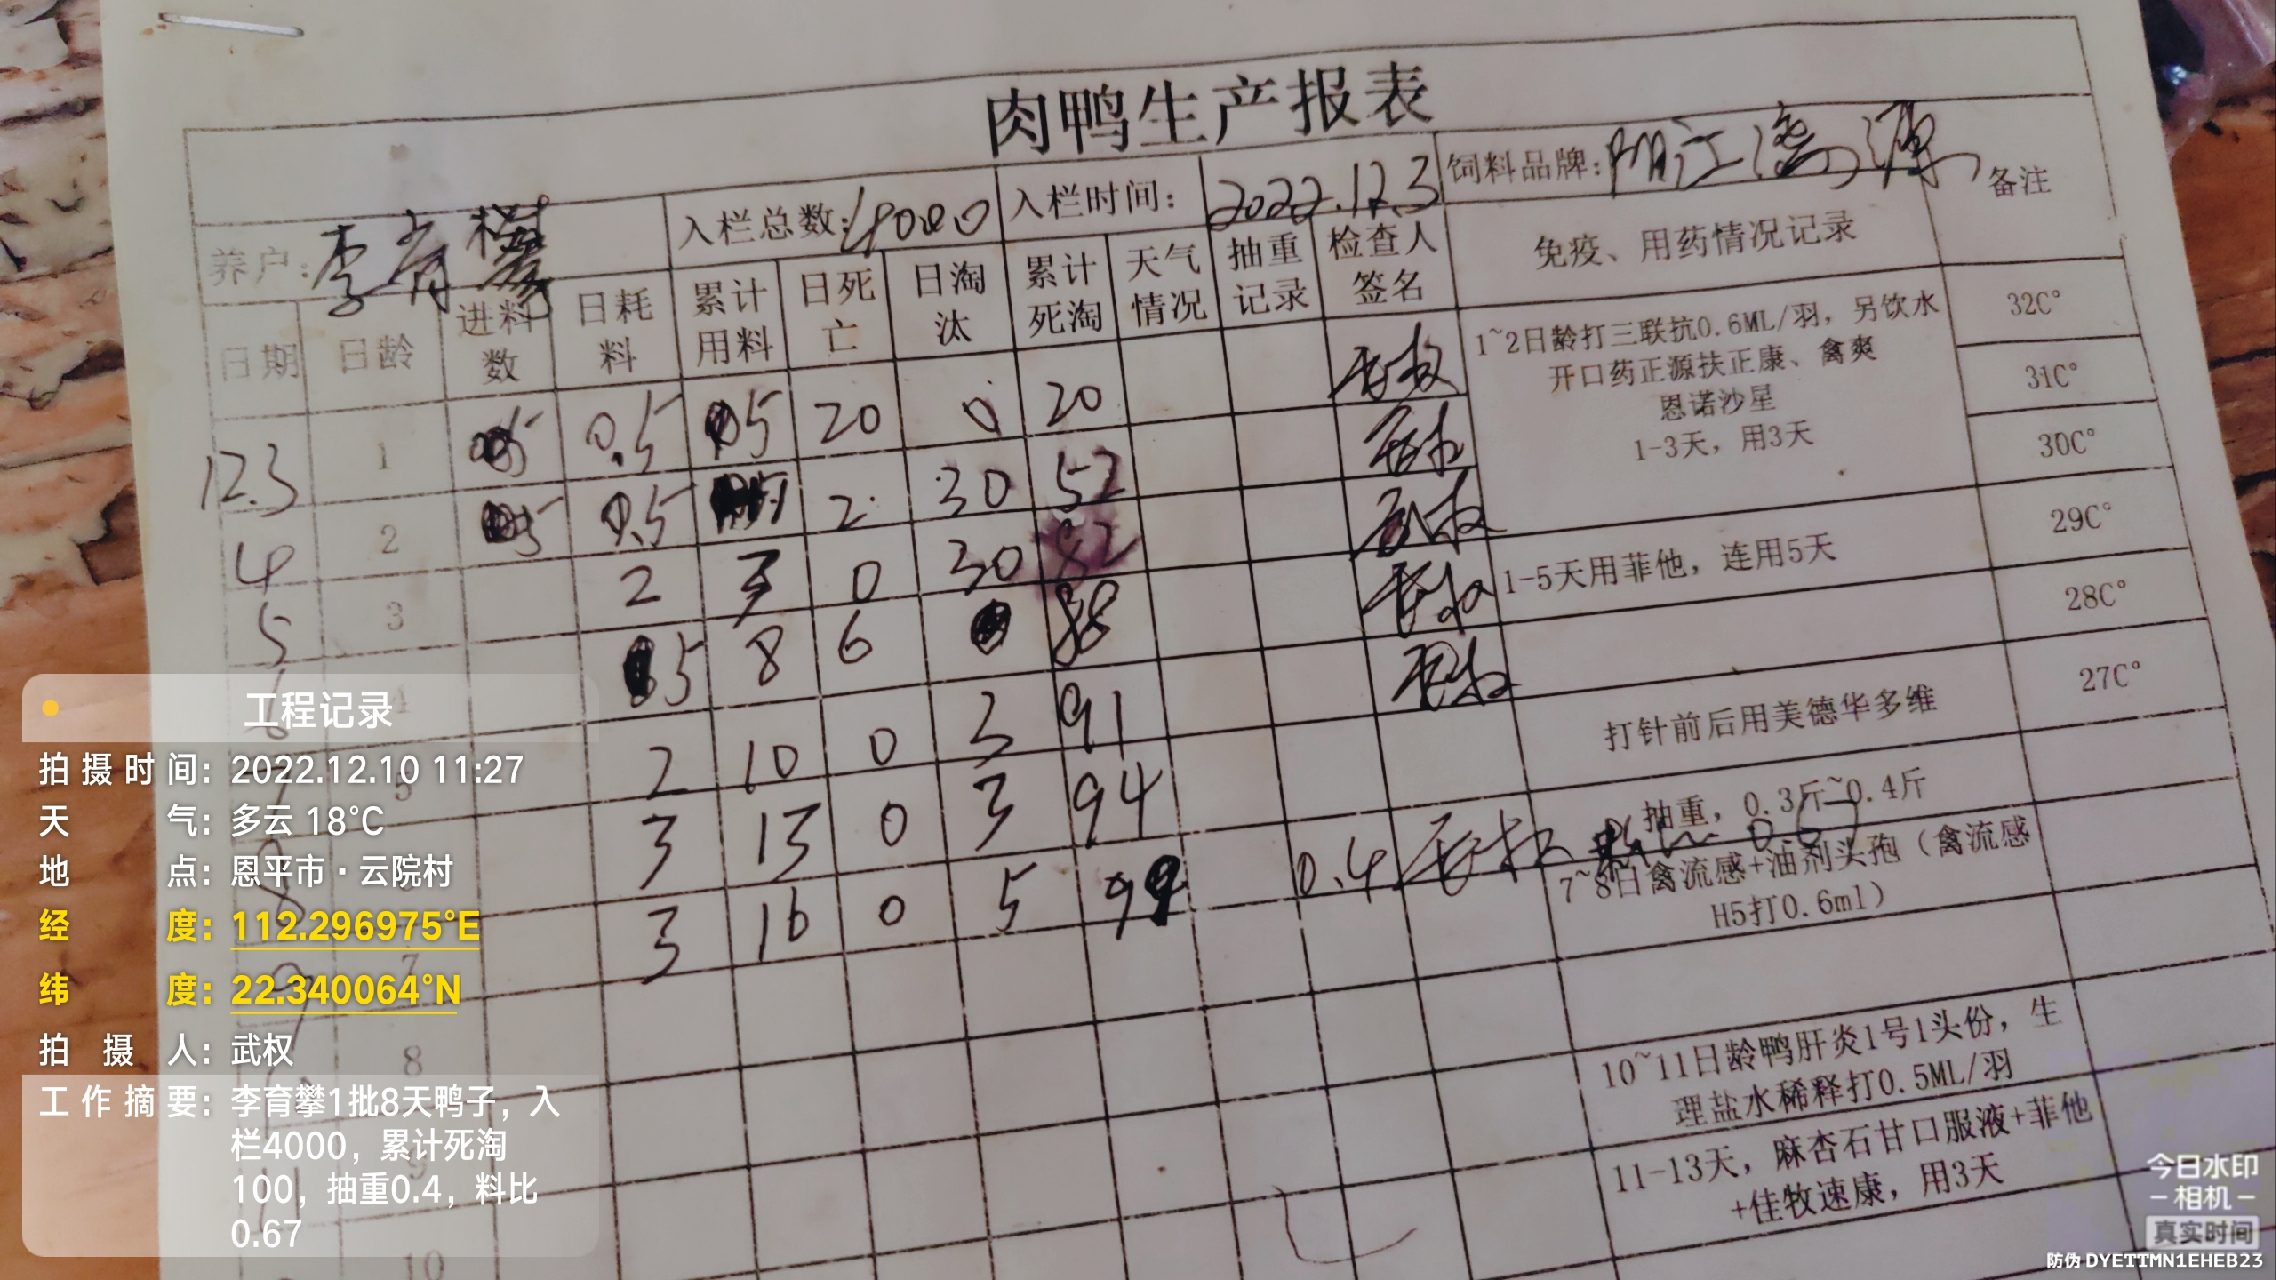 肉鸭生产报表
养户: 李育攀 入栏总数: 4000 入栏时间: 2022.12.3 饲料品牌: 阳江 源 备注
日期 日龄 进料数 日耗料 累计用料 日死亡 日淘汰 累计死淘 天气情况 抽重记录 检查人签名 免疫、用药情况记录
12.3 1 05 0.5 05 20 0 20
4 2 05 0.5 2 30 52
5 3 2 3 0 30 82
6 4 5 8 6 88
7 5 2 10 0 3 91
8 3 13 0 3 94
9 7 3 16 0 5 99 0.4
8
9
10
1~2日龄打三联抗0.6ML/羽，另饮水
开口药正源扶正康、禽爽
恩诺沙星
1-3天，用3天
1-5天用菲他，连用5天
打针前后用美德华多维
抽重，0.3斤~0.4斤
7~8日禽流感+油剂头孢（禽流感
H5打0.6ml）
10~11日龄鸭肝炎1号1头份，生
理盐水稀释打0.5ML/羽
11-13天，麻杏石甘口服液+菲他
+佳牧速康，用3天
32C°
31C°
30C°
29C°
28C°
27C°
工程记录
拍摄时间：2022.12.10 11:27
天气：多云 18°C
地点：恩平市·云院村
经度：112.296975°E
纬度：22.340064°N
拍摄人：武权
工作摘要：李育攀1批8天鸭子，入
栏4000，累计死淘
100，抽重0.4，料比
0.67
今日水印
-相机-
真实时间
防伪 DYETTMN1EHEB23